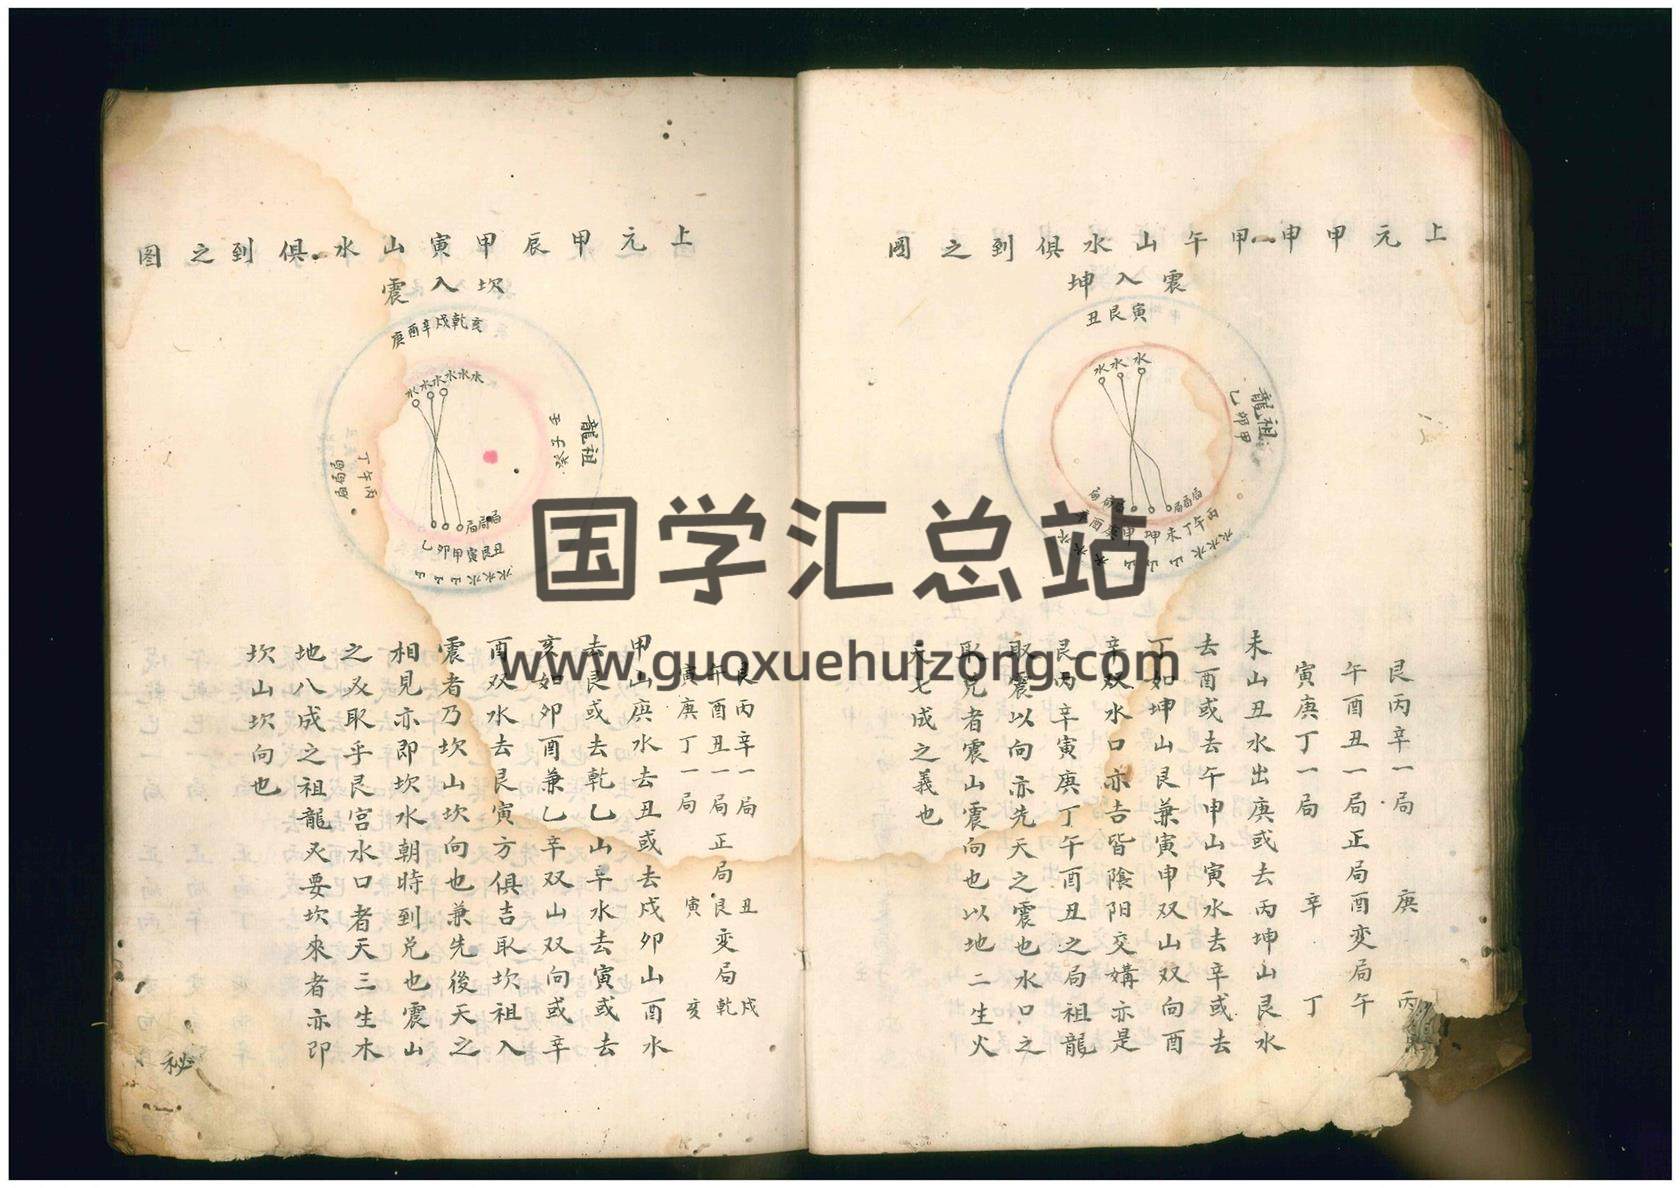 上元甲申甲午山水俱到之图
震入坤
丑艮寅
水水水
龍祖
乙卯甲
艮丙辛一局 庚 丙
午酉丑一局正局酉变局午
寅庚丁一局 辛 丁
未山丑水出庚或去丙坤山艮水
去酉或去午申山寅水去辛或去
丁如坤山艮兼寅申双山双向酉
辛双水口亦吉皆陰阳交媾亦是
艮丙辛寅庚丁午酉丑之局祖龍
取震以向亦先天之震也水口之
取兑者震山震向也以地二生火
天七成之義也
上元甲辰甲寅山水俱到之图
坎入震
庚酉辛戍乾亥
水水水水水水
龍祖
壬子癸
丁午丙
局局局
局局局
乙卯甲寅艮丑
山山山水水水
艮丙辛一局 丑 戍
午酉丑一局正局艮变局乾
寅庚丁一局 寅 亥
甲山庚水去丑或去戍卯山酉水
去艮或去乾乙山辛水去寅或去
亥如卯酉兼乙辛双山双向或辛
酉双水去艮寅方俱吉取坎祖入
震者乃坎山坎向也兼先後天之
相見亦即坎水朝時到兑也震山
之及取乎艮宫水口者天三生木
地八成之祖龍及要坎來者亦即
坎山坎向也
秘
国学汇总站
www.guoxuehuizong.com